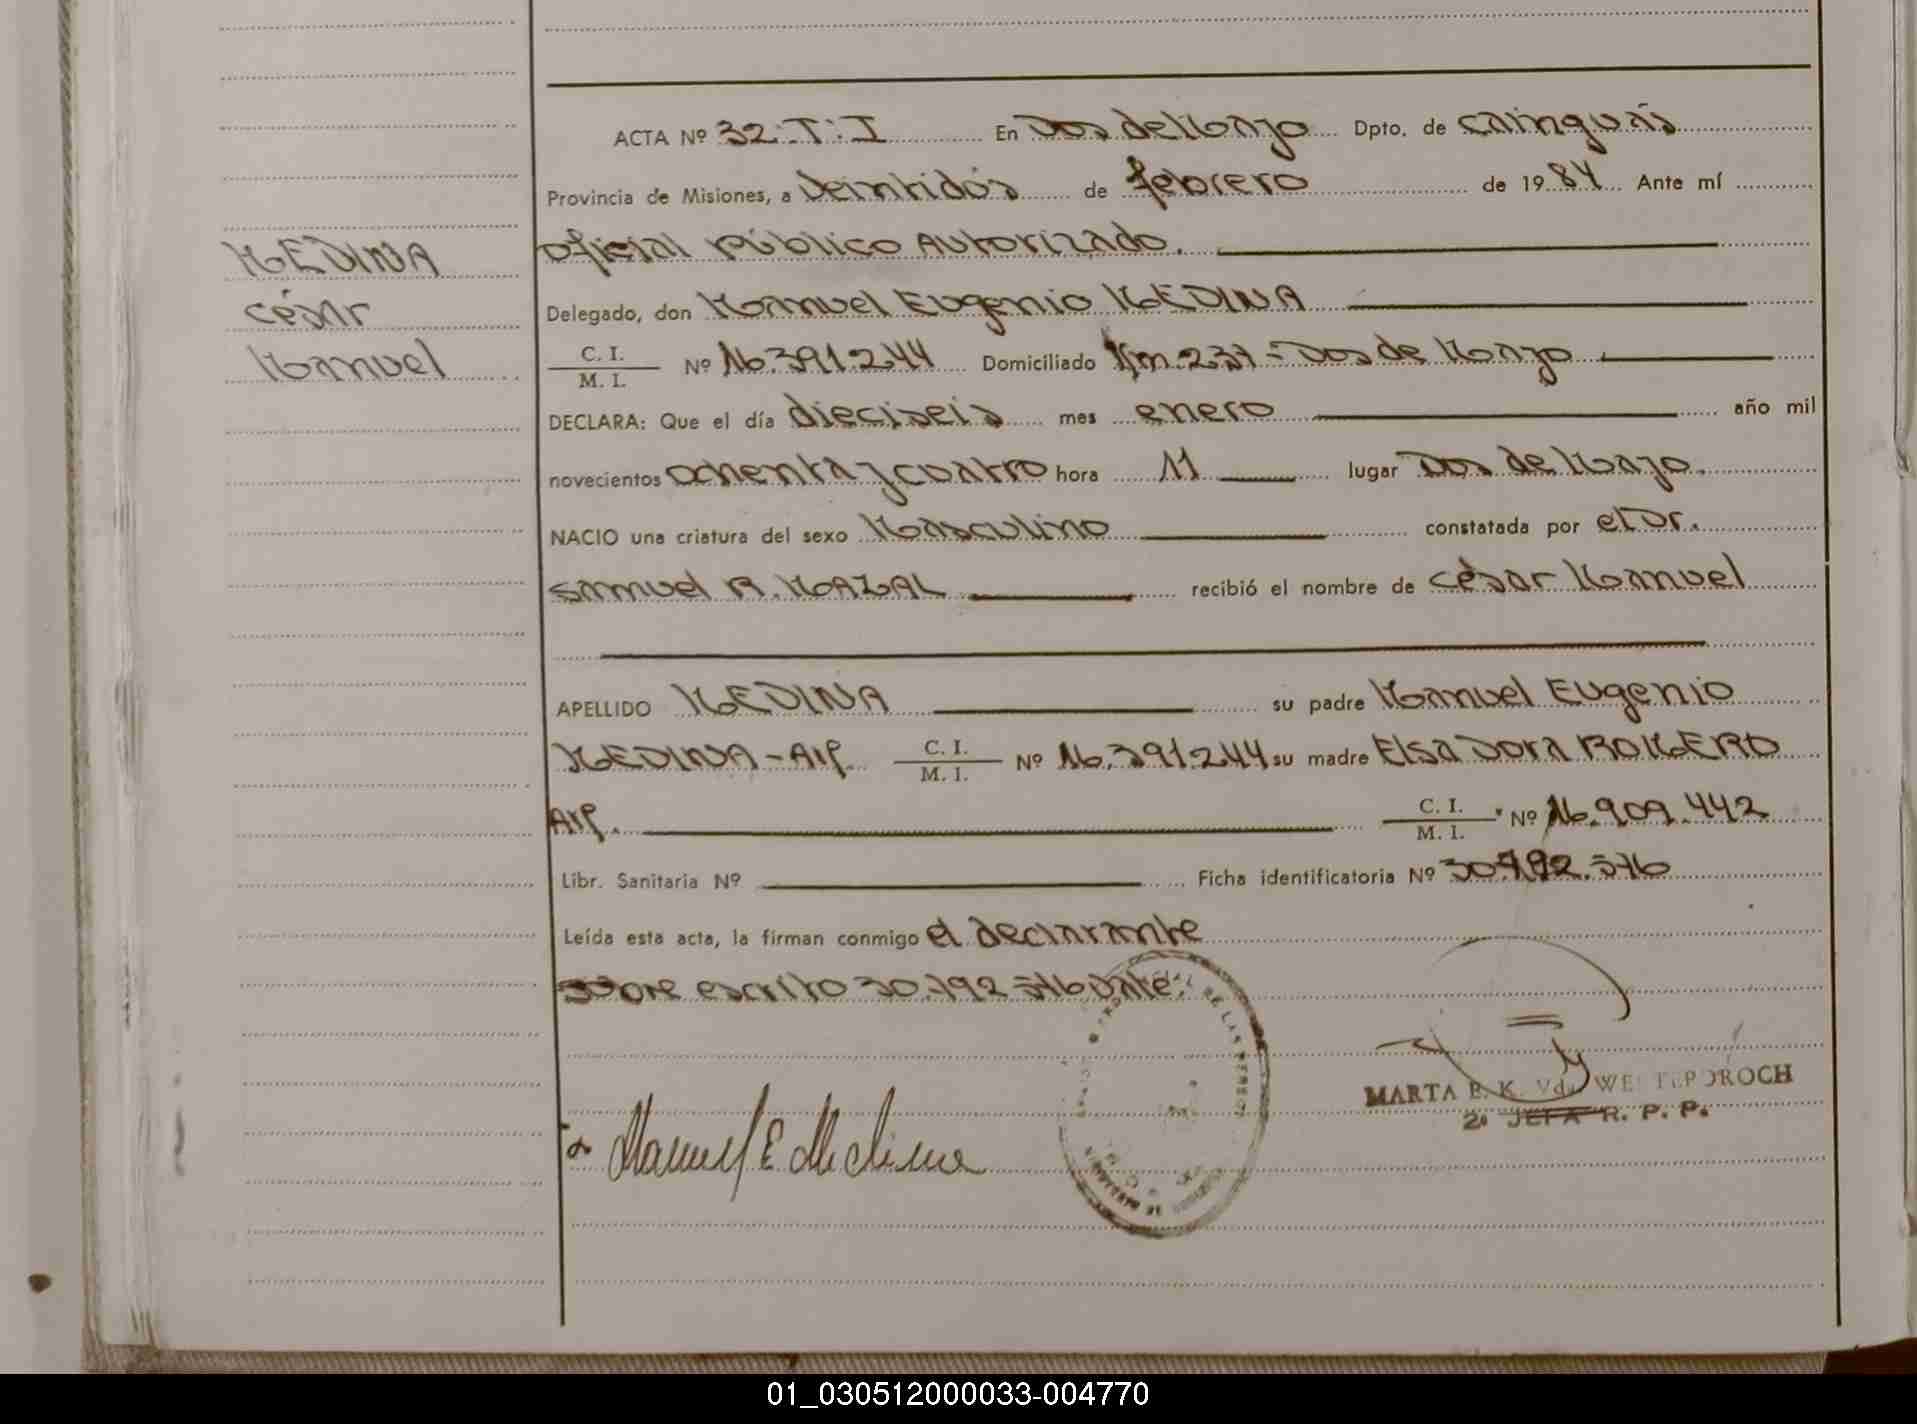 ACTA Nº 32-T:I En Dos de Mayo Dpto. de Cainguás
Provincia de Misiones, a Veintidós de febrero de 1984 Ante mí
Oficial Público Autorizado.
MEDINA
César
Manuel
Delegado, don Manuel Eugenio MEDINA
C. I.
M. I. Nº 16.391.244 Domiciliado Km.237 - Dos de Mayo
DECLARA: Que el día dieciseis mes enero año mil
novecientos ochenta y cuatro hora 11 lugar Dos de Mayo.
NACIO una criatura del sexo Masculino constatada por el Dr.
Samuel R. MAZAL recibió el nombre de César Manuel
APELLIDO MEDINA su padre Manuel Eugenio
MEDINA - Arg. C. I.
M. I. Nº 16.391.244 su madre Elsa Dora ROMERO
Arg. C. I.
M. I. Nº 16.909.442
Libr. Sanitaria Nº Ficha identificatoria Nº 30.792.576
Leída esta acta, la firman conmigo el declarante
sobre escrito 30.792.576 Vale.
Manuel E Medina
MARTA E. K. Vda WESTEPDROCH
2ª JEFA R. P. P.
01_030512000033-004770